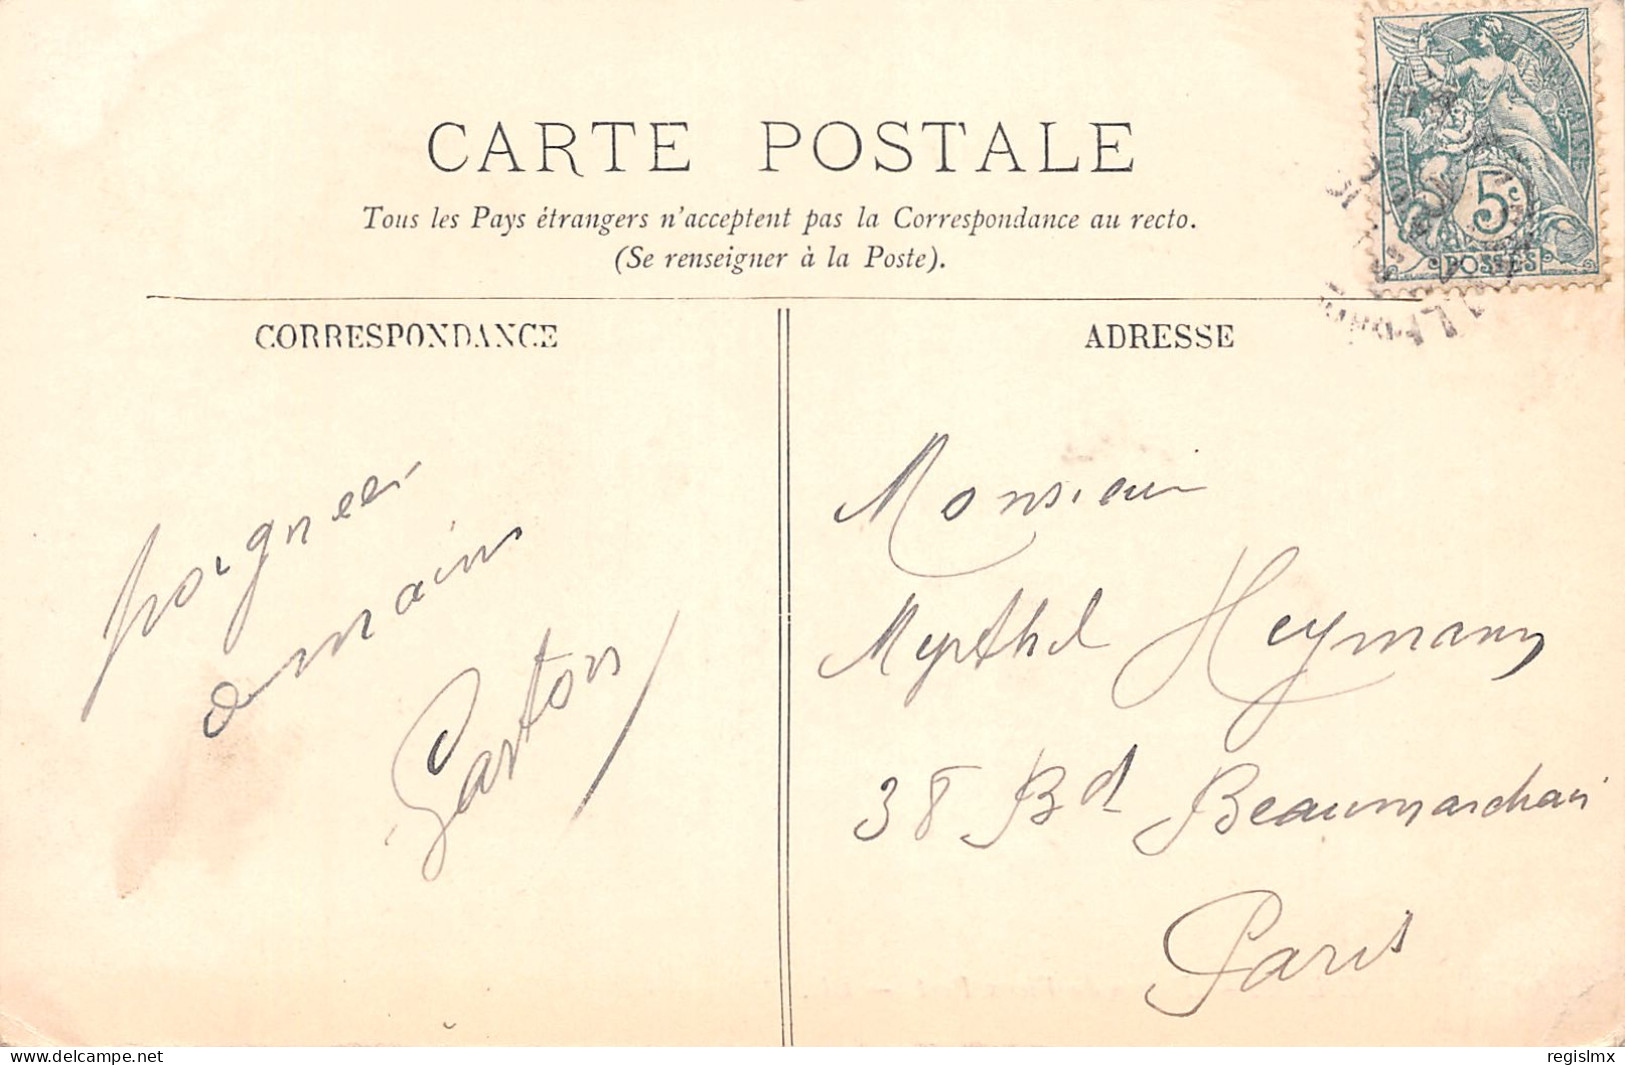 CARTE POSTALE
Tous les Pays étrangers n'acceptent pas la Correspondance au recto.
(Se renseigner à la Poste).
CORRESPONDANCE
ADRESSE
RÉPUBLIQUE FRANÇAISE
5c
POSTES
poignées
de mains
Gaston
Monsieur
Myrthil Heymann
38 Bd Beaumarchais
Paris
delcampe.net
regislmx